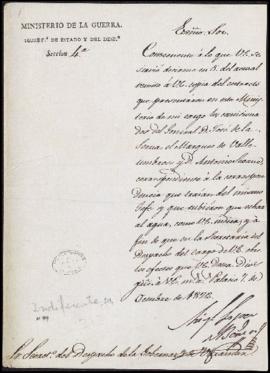 MINISTERIO DE LA GUERRA.
SECRET.ª DE ESTADO Y DEL DESP.º
Seccion 4.ª
Exmo. Sor.
Consecuente á lo que V.E. se
sirvió decirme en 3. del actual
remito á V.E. copia del extracto
que presentaron en este Minis-
terio de mi cargo los
del General D. José de la
Serna el Marques de Valle-
umbroso y D. Antonio
correspondiente á la correspon-
dencia que traian del mismo
Gefe y que tubieron que echar
al agua, como V.E. indica; á
fin de que en la Secretaria del
Despacho del cargo de V.E. obre
los efectos que V.E. desea. Dios
gue. á V.E. m.s a.s Palacio 7. de
Octubre de 1822.
Indiferente,
Sr. Secret.º del Despacho de la Gobern.on de Ultramar